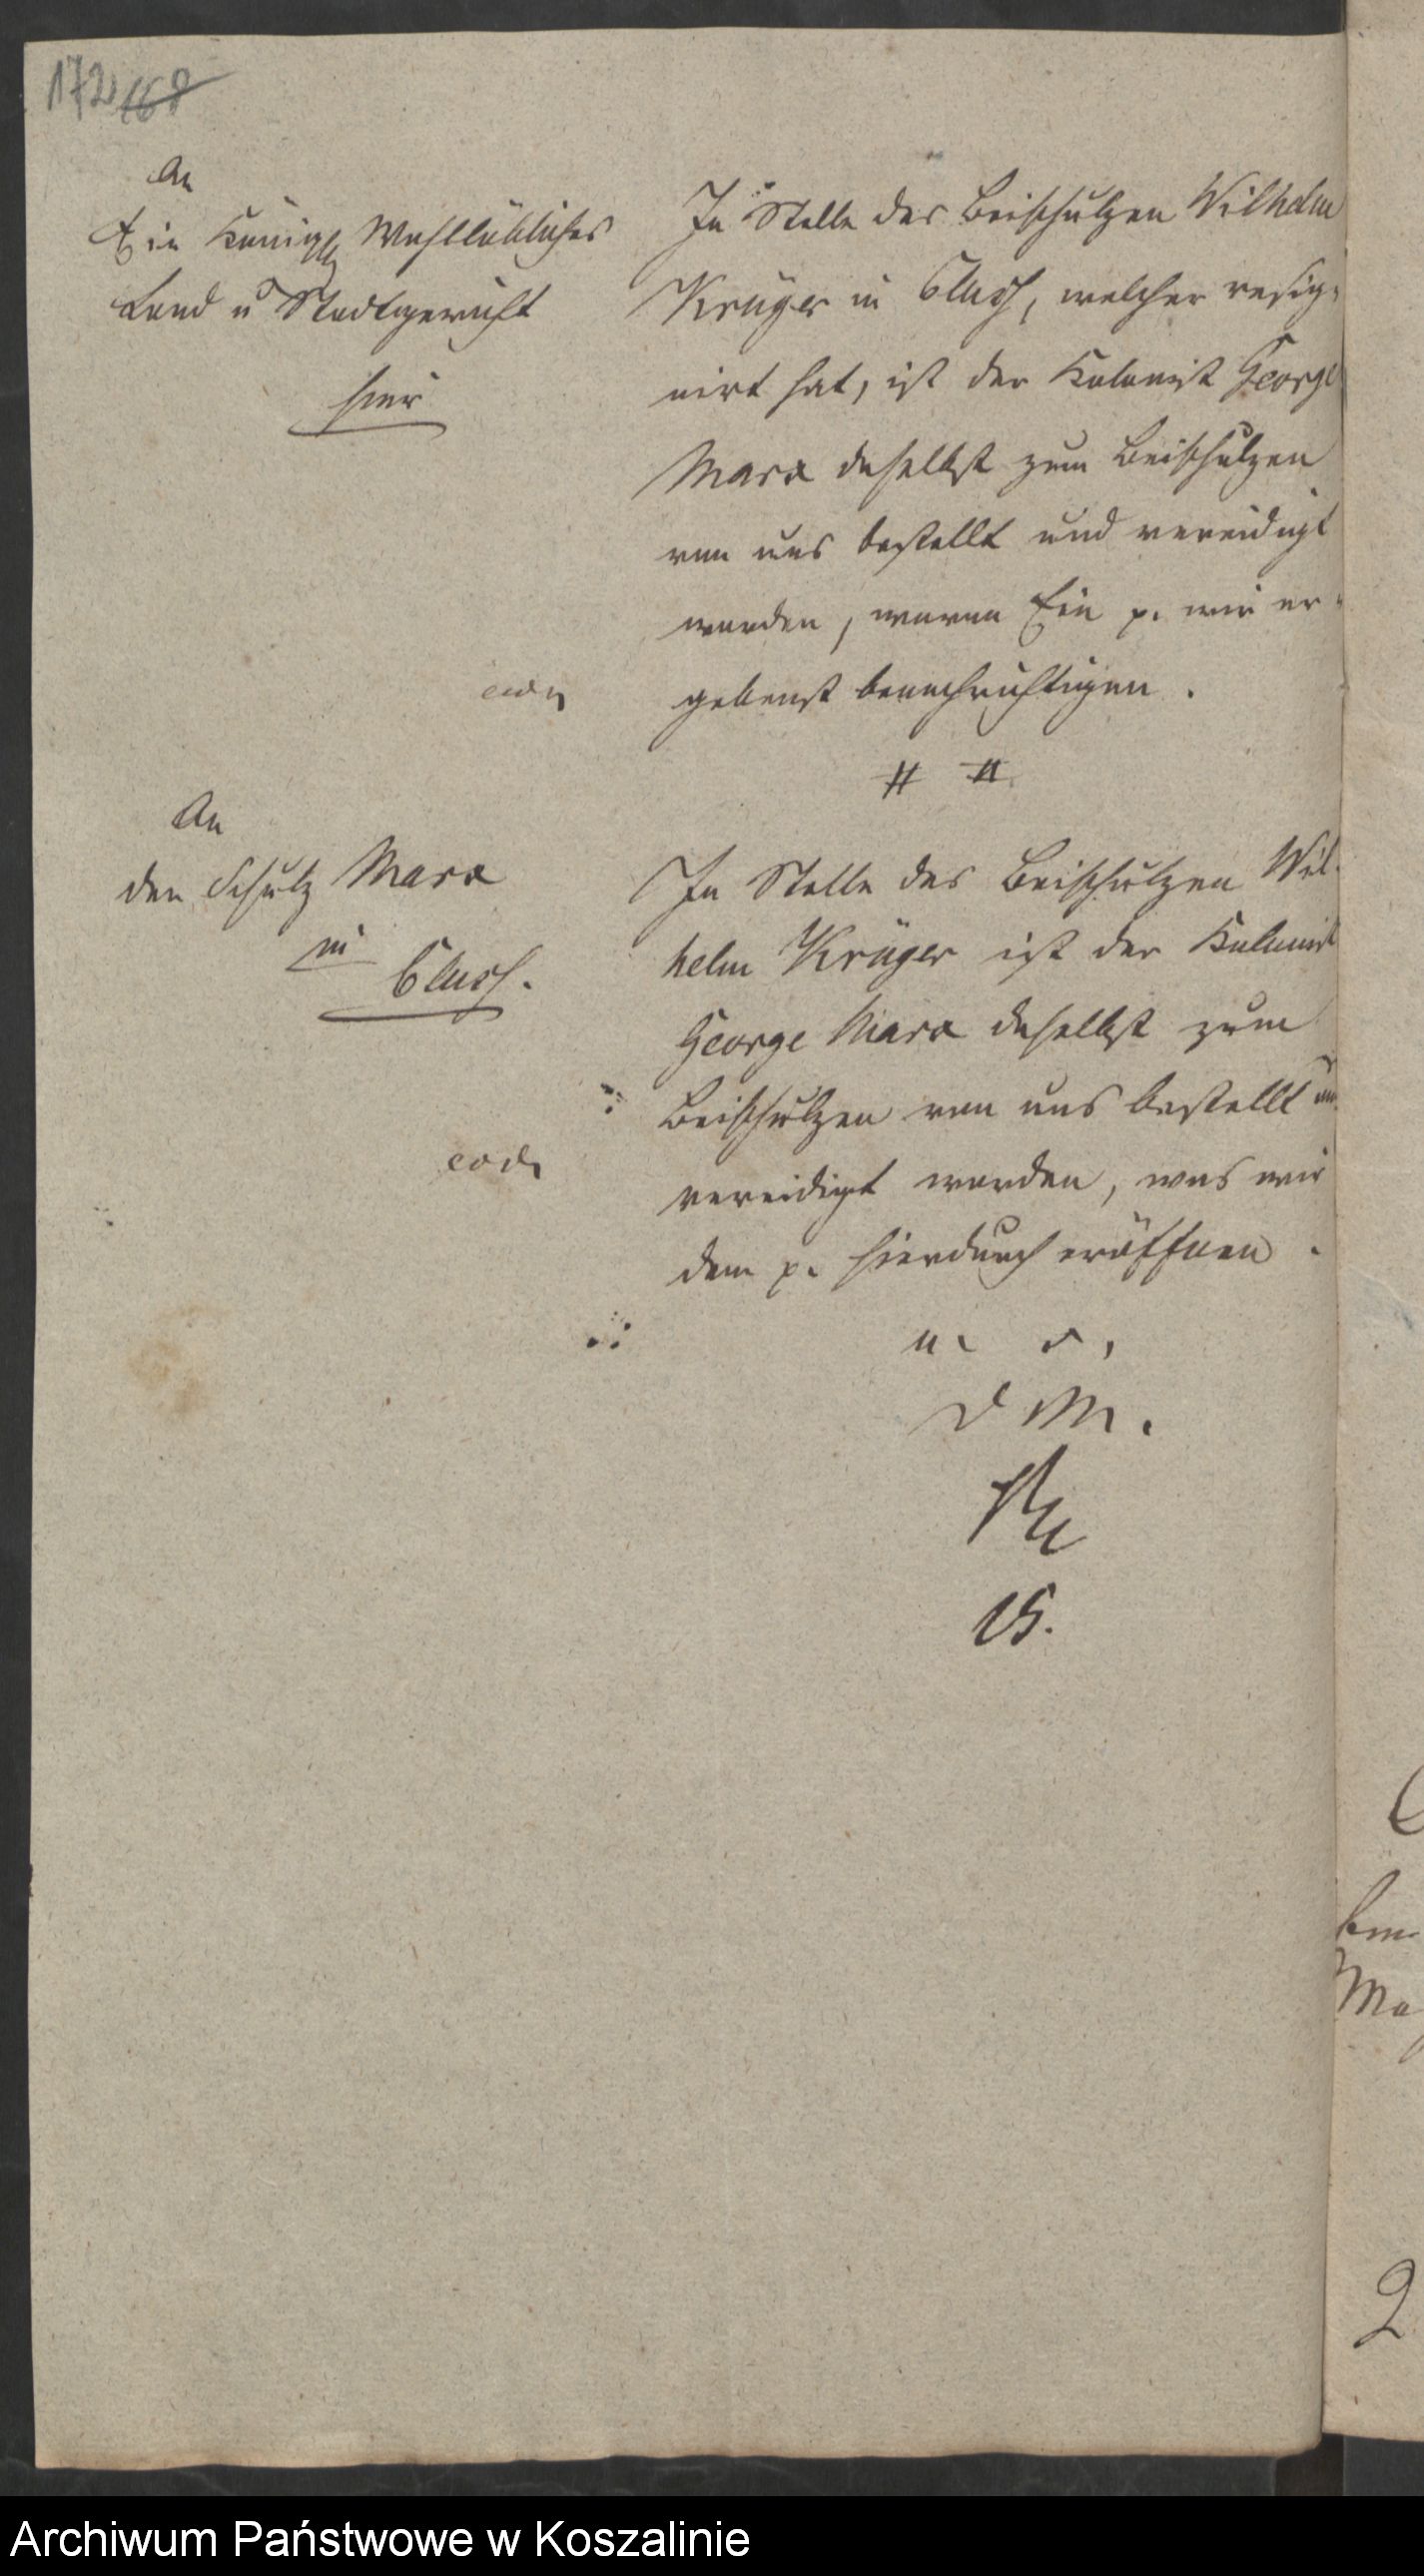 172 168
An
Ein Königl Wohllöbliches
Land u Stadtgericht
hier
In Stelle des Beischulzen Wilhelm
Krüger in Cluss, welcher resig-
nirt hat, ist der Kolonist George
Marx daselbst zum Beischulzen
von uns bestellt und vereidigt
worden, wovon Ein p. wir er-
gebenst benachrichtigen.
eod
An
den Schulz Marx
in
Cluss.
In Stelle des Beischulzen Wil-
helm Krüger ist der Kolonist
George Marx daselbst zum
Beischulzen von uns bestellt un
vereidigt worden, was wir
dem p. hierdurch eröffnen.
eod
u. s.
D M.
15.
Archiwum Państwowe w Koszalinie